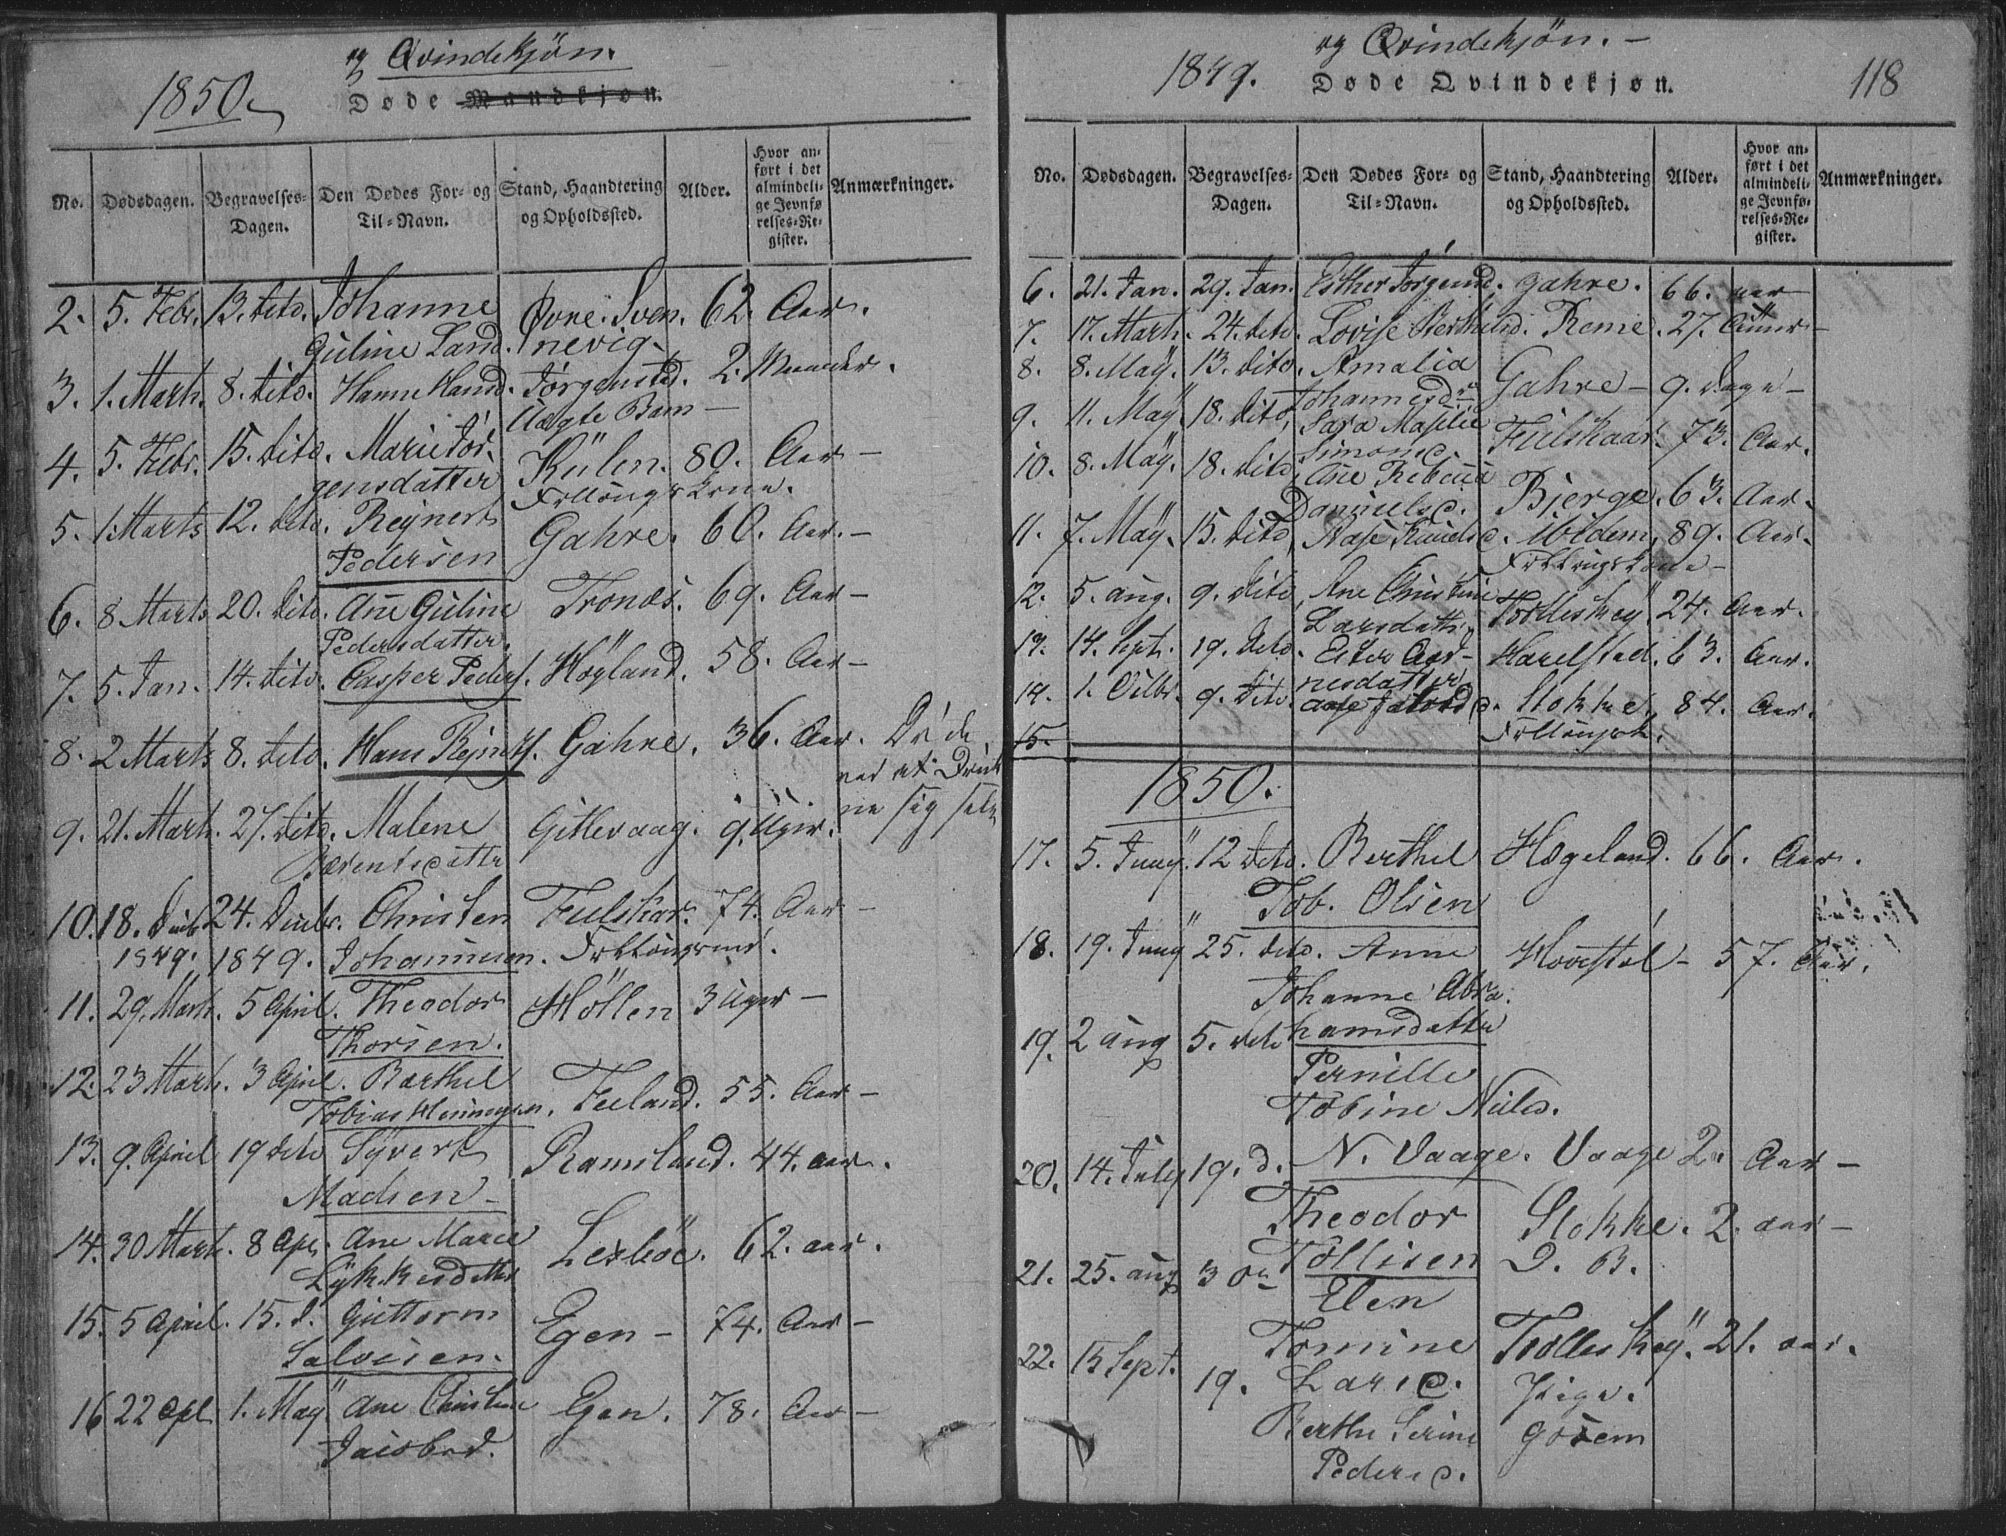 og Qvindekjøn.
1850.
Døde Mandkjøn.
No. Dødsdagen. Begravelses-Dagen. Den Dødes For- og Til-Navn. Stand, Haandtering og Opholdssted. Alder. Hvor anført i det almindelige Jevnførelses-Register. Anmærkninger.
2. 5. Febr. 13. dito. Johanne Øvre. Sven. 62. Aar.
Guline Land. nevig.
3. 1. Marts. 8. dito. Hanne Hansd. Jørgenstad. 2. Maaneder.
Uægte Barn
4. 5. Febr. 15. dito. Marie Jør- Külen. 89. Aar
gensdatter Follougskone.
5. 1. Marts 12. dito. Rejnert Gahre. 60. Aar.
Pedersen
6. 8 Marts 20. dito. Ane Guline Tronæs. 69. Aar
Pedersdatter.
7. 5. Jan. 14. dito. Casper Peders. Høyland. 58. Aar
8. 2 Marts 8. dito. Hans Rejnerts. Gahre. 36. Aar. Døde
ved at Druk
ne sig selv
9. 21. Marts. 27. dito. Malene Gitlevaag. 9. Uger.
Berentsdattr
10. 18. Decb 24. Decbr. Christen Fuelskar. 74. Aar
1849. 1849. Johannesen. Follougsmd.
11. 29. Marts. 5 April. Theodor Høllen 3 Uger
Thorsen.
12. 23 Marts. 3 April. Barthel Feeland. 55. Aar
Tobias Henningsen.
13. 9. April 19 dito Syvert Ramsland. 44. aar.
Madsen
14. 30 Marts. 8 Apr. Ane Marie Lesbøe. 62. aar.
Lÿkkesdatter
15. 5 April. 15. d. Guttorm Egen 74. Aar
Salvesen.
16 22 Apl 1. Maÿ. Ane Christine Egen. 78. Aar
Jacobsd.
og Qvindekjøn.
1849. Døde Qvindekjøn. 118
No. Dødsdagen. Begravelses-Dagen. Den Dødes For- og Til-Navn. Stand, Haandtering og Opholdssted. Alder. Hvor anført i det almindelige Jevnførelses-Register. Anmærkninger.
6. 21. Jan. 29. Jan. Esther Jørgensd. Gahre. 66. aar
7. 17. Marts. 24. dito. Lovise Berthelsd. Reme. 27. Aar
8. 8. Maÿ. 13. dito. Amalia Gahre 9. dage
Johannesdr
9. 11. Maÿ. 18. dito, Sara Maslie Fuelskaar. 73. Aar.
Simonsd.
10. 8. Maÿ. 18. dito, Ane Rebecca Bjerge. 63. Aar.
Danielsd.
11. 7. Maÿ. 15. dito, Aase ibidem, 89. Aar.
Follougskone
12. 5. aug. 9. dito, Ane Christine Trolleskeÿ 24. Aar.
Larsdattr
13. 14. Septr. 19. dito. Ester Aar- Harelstad. 63. Aar.
nesdatter
14. 1. Octbr. 9. dito. Aase Stokke. 84. Aar.
Follougsk.
15.
1850.
17. 5. Junÿ. 12 dito. Berthel Høgeland. 66. Aar.
Tob. Olsen
18. 19. Junÿ 25. dito. Anna Hovestøl 57. Aar.
Johanne Abra.
hamsdatter
19. 2 aug 5. dito Pernille
Tobine Niels.
N. Vaage. Vaage 2. Aar
20. 14. July 19. d. Theodor Stokke. 2. aar
Tollisen D. B.
21. 25. aug 30 Elen
Tomine Trolleskeÿ. 21. aar.
Larsd. Pige.
22. 15 Sept. 19. Berthe Serine Gosem
Pedersd.